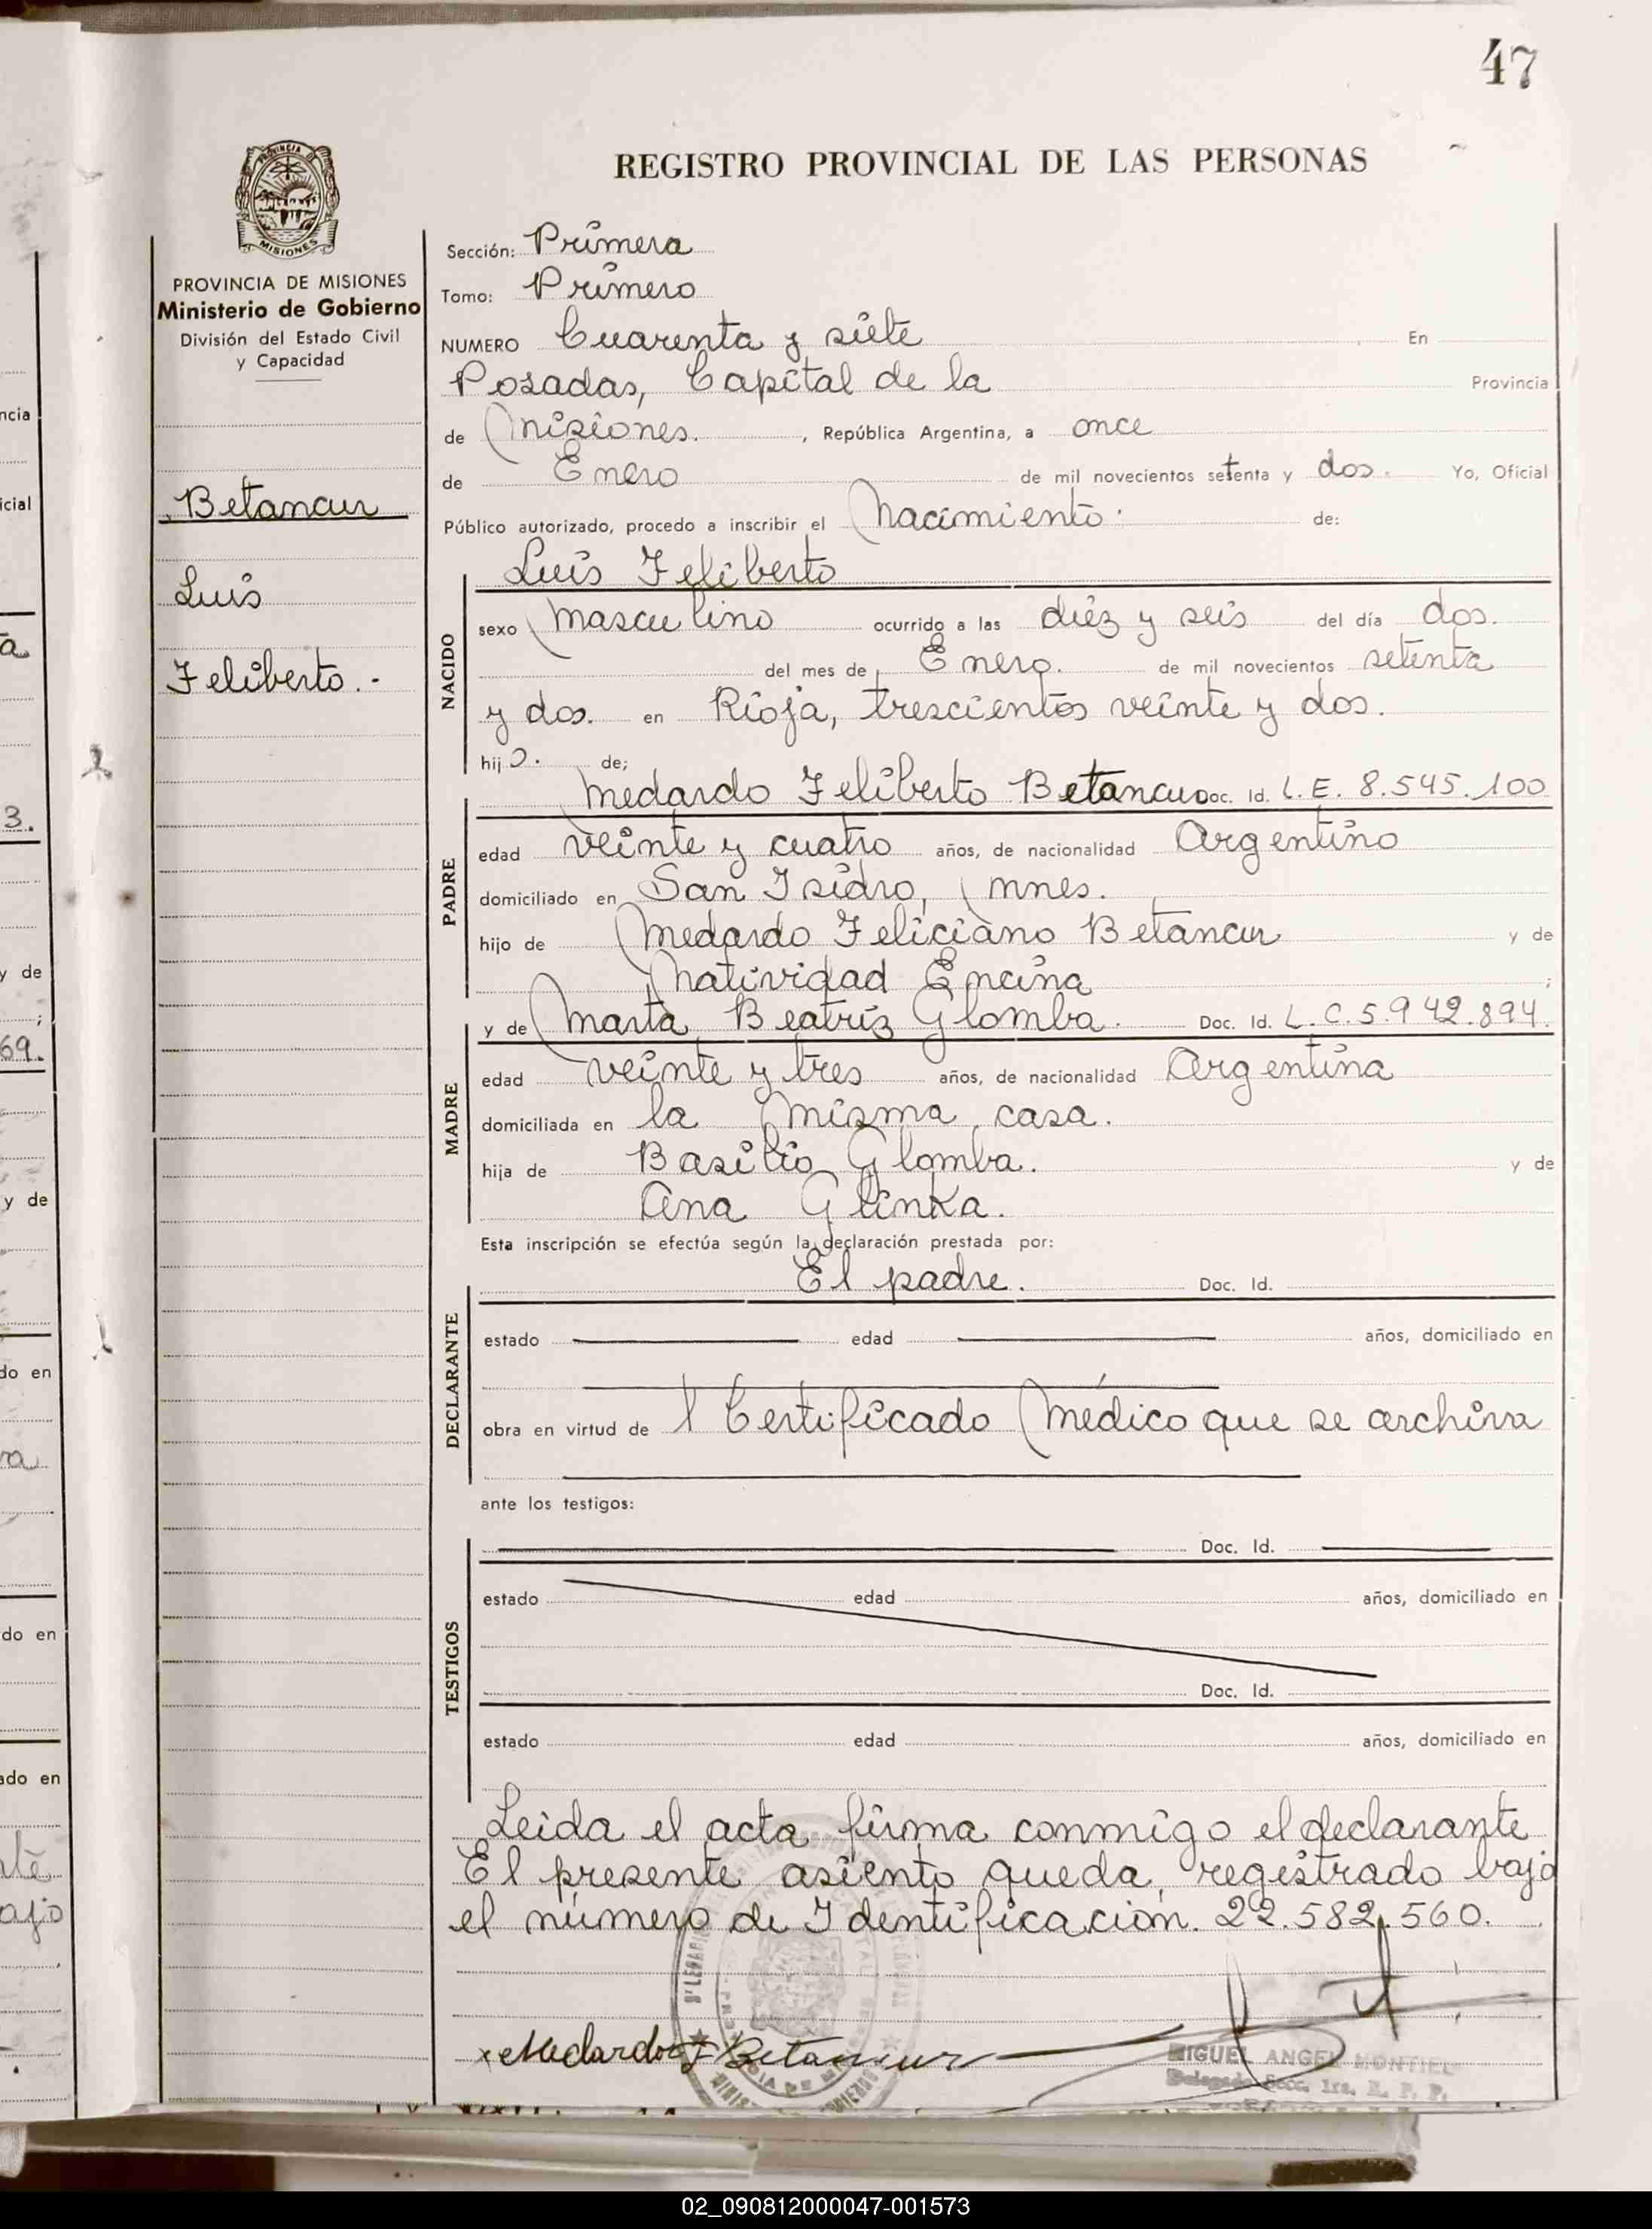 47
REGISTRO PROVINCIAL DE LAS PERSONAS
PROVINCIA DE MISIONES
Ministerio de Gobierno
División del Estado Civil
y Capacidad
Betancur
Luis
Feliberto.-
Sección: Primera
Tomo: Primero
NUMERO Cuarenta y siete En
Posadas, Capital de la Provincia
de Misiones. , República Argentina, a once
de Enero de mil novecientos setenta y dos. Yo, Oficial
Público autorizado, procedo a inscribir el Nacimiento. de:
Luis Feliberto
NACIDO
sexo Masculino ocurrido a las diéz y seis del día dos.
del mes de Enero. de mil novecientos setenta
y dos. en Rioja, trescientos veinte y dos.
hijo. de;
Medardo Feliberto Betancur Doc. Id. L.E. 8.545.100
PADRE
edad veinte y cuatro años, de nacionalidad Argentino
domiciliado en San Isidro, Mnes.
hijo de Medardo Feliciano Betancur y de
Natividad Encina ;
y de Marta Beatríz Glomba. Doc. Id. L.C. 5.942.894.
MADRE
edad veinte y tres años, de nacionalidad Argentina
domiciliada en la misma casa.
hija de Basilio Glomba. y de
Ana Glinka.
Esta inscripción se efectúa según la declaración prestada por:
El padre. Doc. Id.
DECLARANTE
estado edad años, domiciliado en
obra en virtud de 1 Certificado Médico que se archiva
ante los testigos:
Doc. Id.
TESTIGOS
estado edad años, domiciliado en
Doc. Id.
estado edad años, domiciliado en
Leida el acta firma conmigo el declarante
El presente asiento queda registrado bajo
el número de Identificación. 22.582.560.
Medardo F Betancur
MIGUEL ANGEL MONTIEL
Delegado Secc. 1ra. R. P. P.
02_090812000047-001573